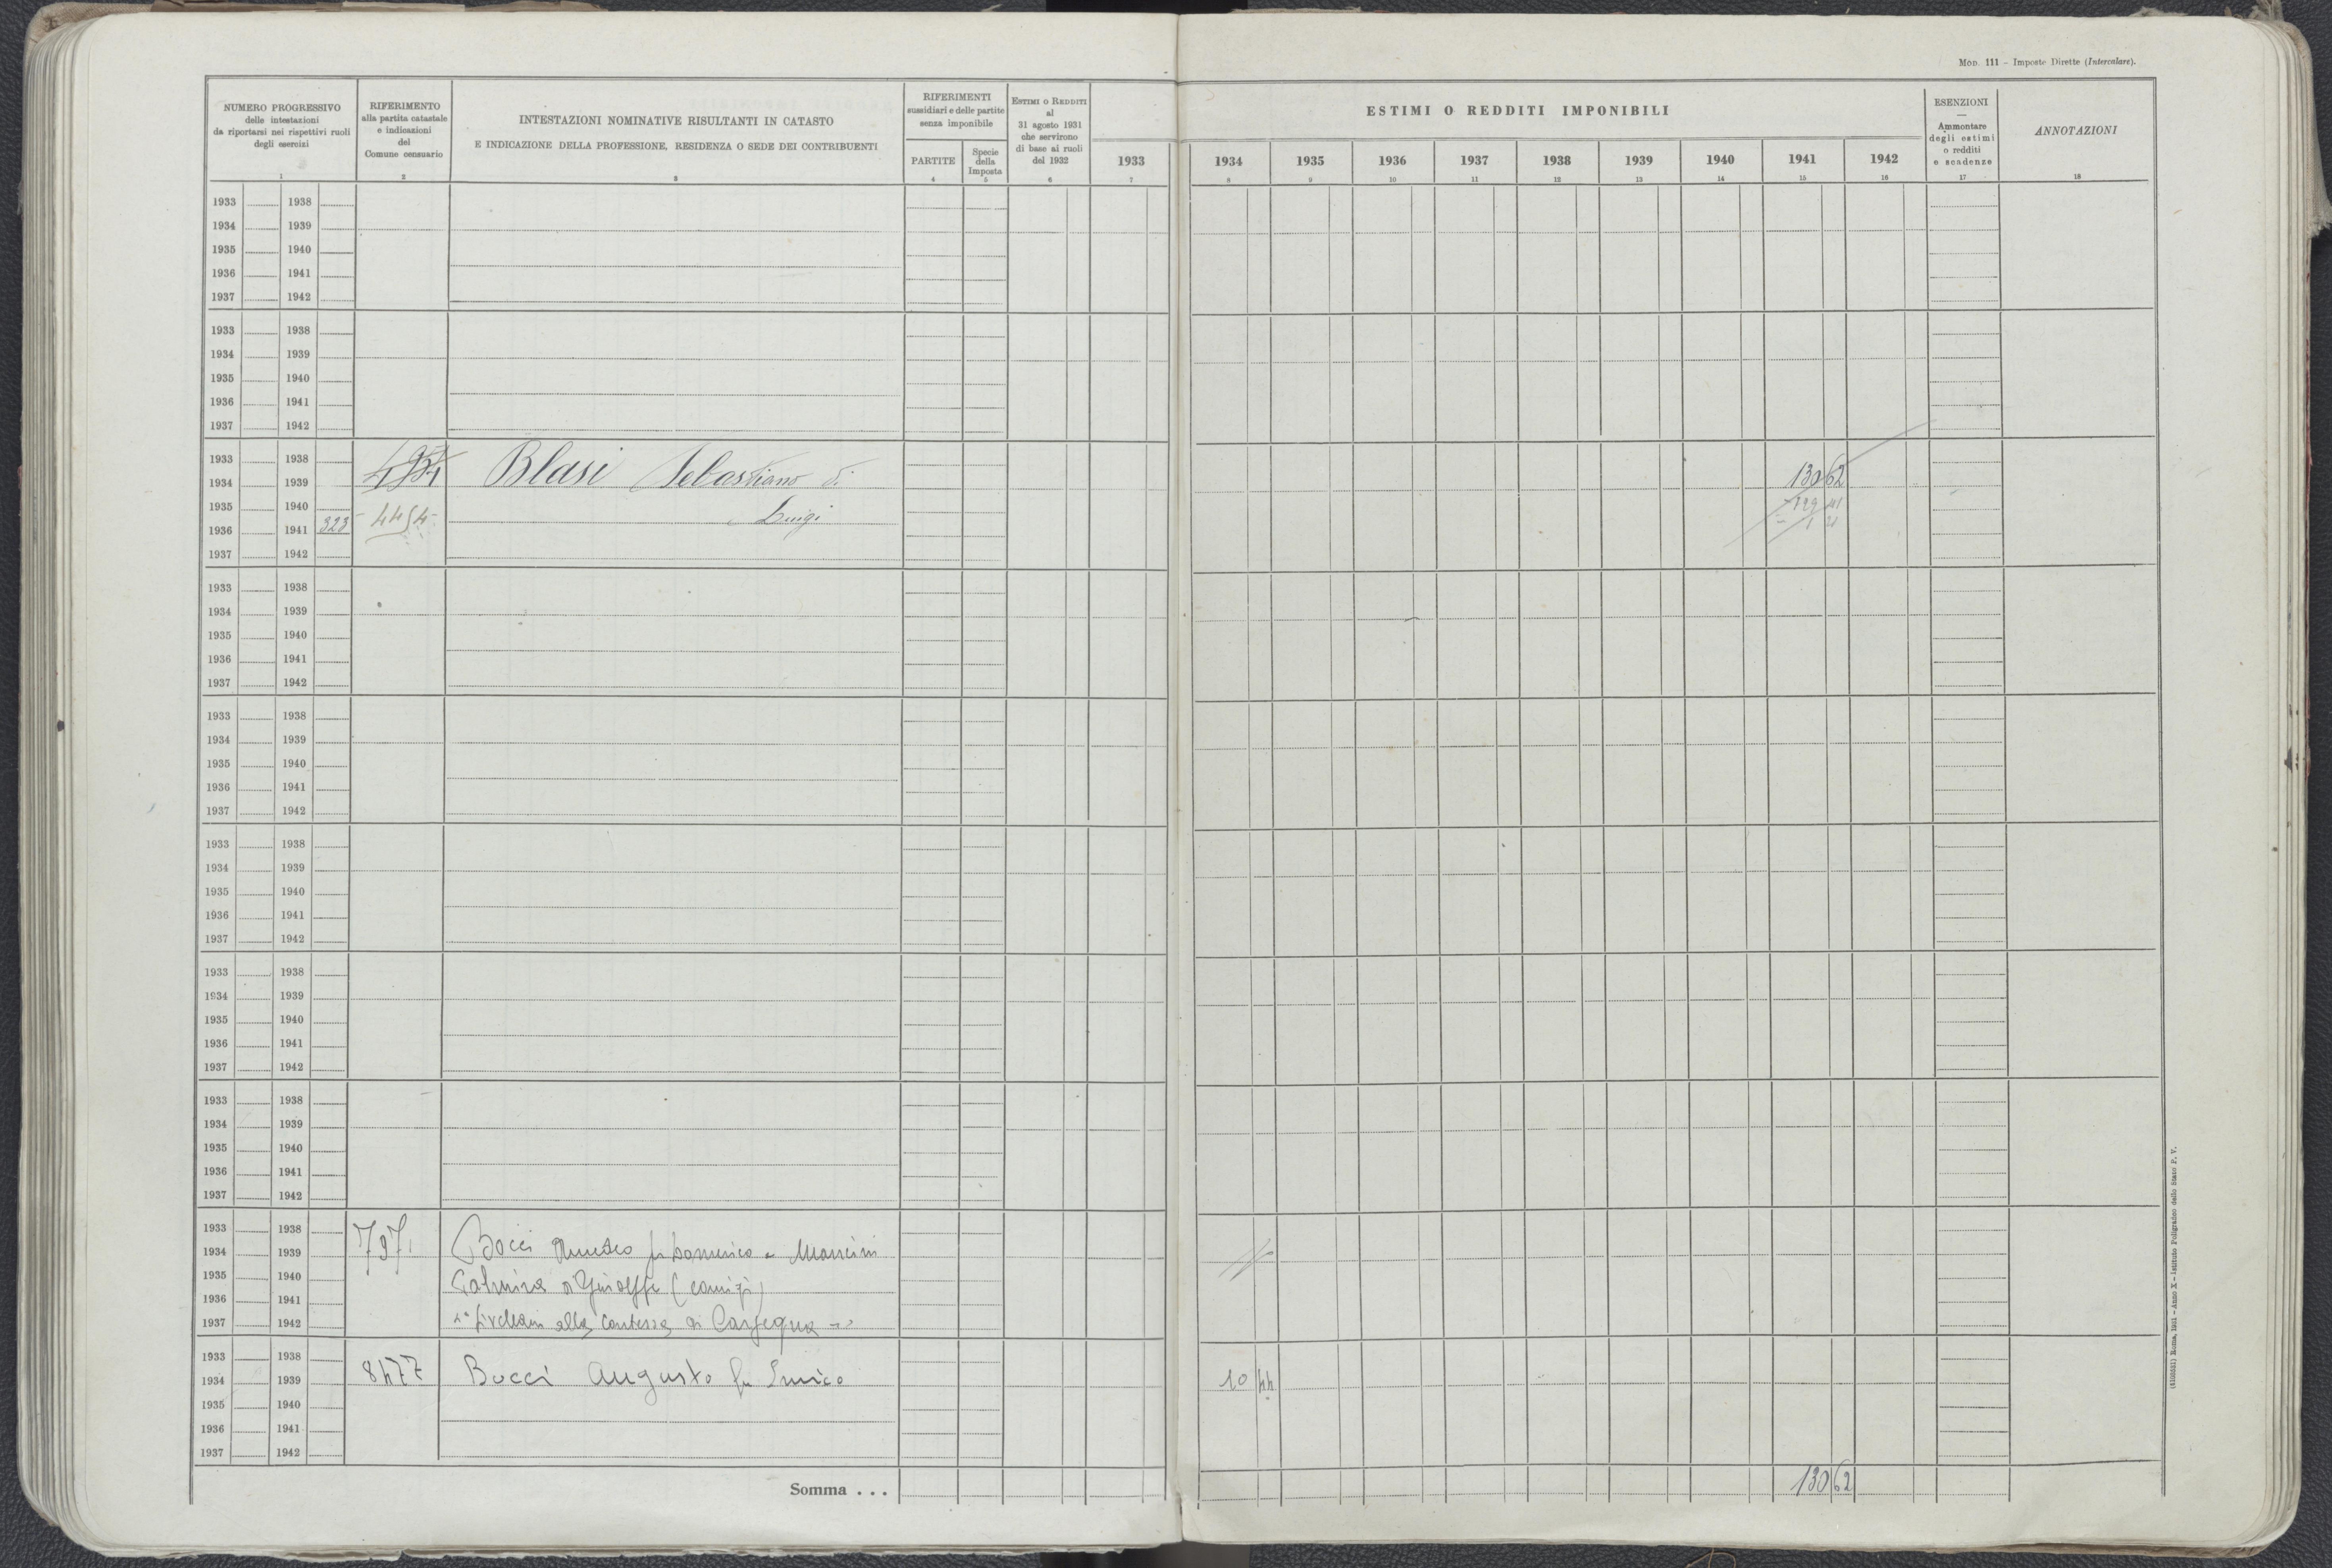 MOD. 111 – Imposte Dirette (Intercalare).
NUMERO PROGRESSIVO
delle intestazioni
da riportarsi nei rispettivi ruoli
degli esercizi
1
RIFERIMENTO
alla partita catastale
e indicazioni
del
Comune censuario
2
INTESTAZIONI NOMINATIVE RISULTANTI IN CATASTO
E INDICAZIONE DELLA PROFESSIONE, RESIDENZA O SEDE DEI CONTRIBUENTI
3
RIFERIMENTI
sussidiari e delle partite
senza imponibile
PARTITE
4
Specie
della
Imposta
5
ESTIMI O REDDITI
al
31 agosto 1931
che servirono
di base ai ruoli
del 1932
6
ESTIMI O REDDITI IMPONIBILI
1933 1934 1935 1936 1937 1938 1939 1940 1941 1942
7 8 9 10 11 12 13 14 15 16
ESENZIONI
—
Ammontare
degli estimi
o redditi
e scadenze
17
ANNOTAZIONI
18
1933 1938
1934 1939
1935 1940
1936 1941
1937 1942
1933 1938
1934 1939
1935 1940
1936 1941
1937 1942
1933 1938
1934 1939 Blasi Sebastiano di 130 62
1935 1940 129 41
1936 1941 323 4454 Luigi 1 21
1937 1942
1933 1938
1934 1939
1935 1940
1936 1941
1937 1942
1933 1938
1934 1939
1935 1940
1936 1941
1937 1942
1933 1938
1934 1939
1935 1940
1936 1941
1937 1942
1933 1938
1934 1939
1935 1940
1936 1941
1937 1942
1933 1938
1934 1939
1935 1940
1936 1941
1937 1942
1933 1938
1934 1939 Bocci fu Domenico e Mancini
1935 1940 (coniugi)
1936 1941
1937 1942 alla Contessa di
1933 1938
1934 1939 8477 Bucci Augusto fu Enrico 10 44
1935 1940
1936 1941
1937 1942
Somma . . . 130 62
Roma, 1931 – Anno X – Istituto Poligrafico dello Stato P. V.